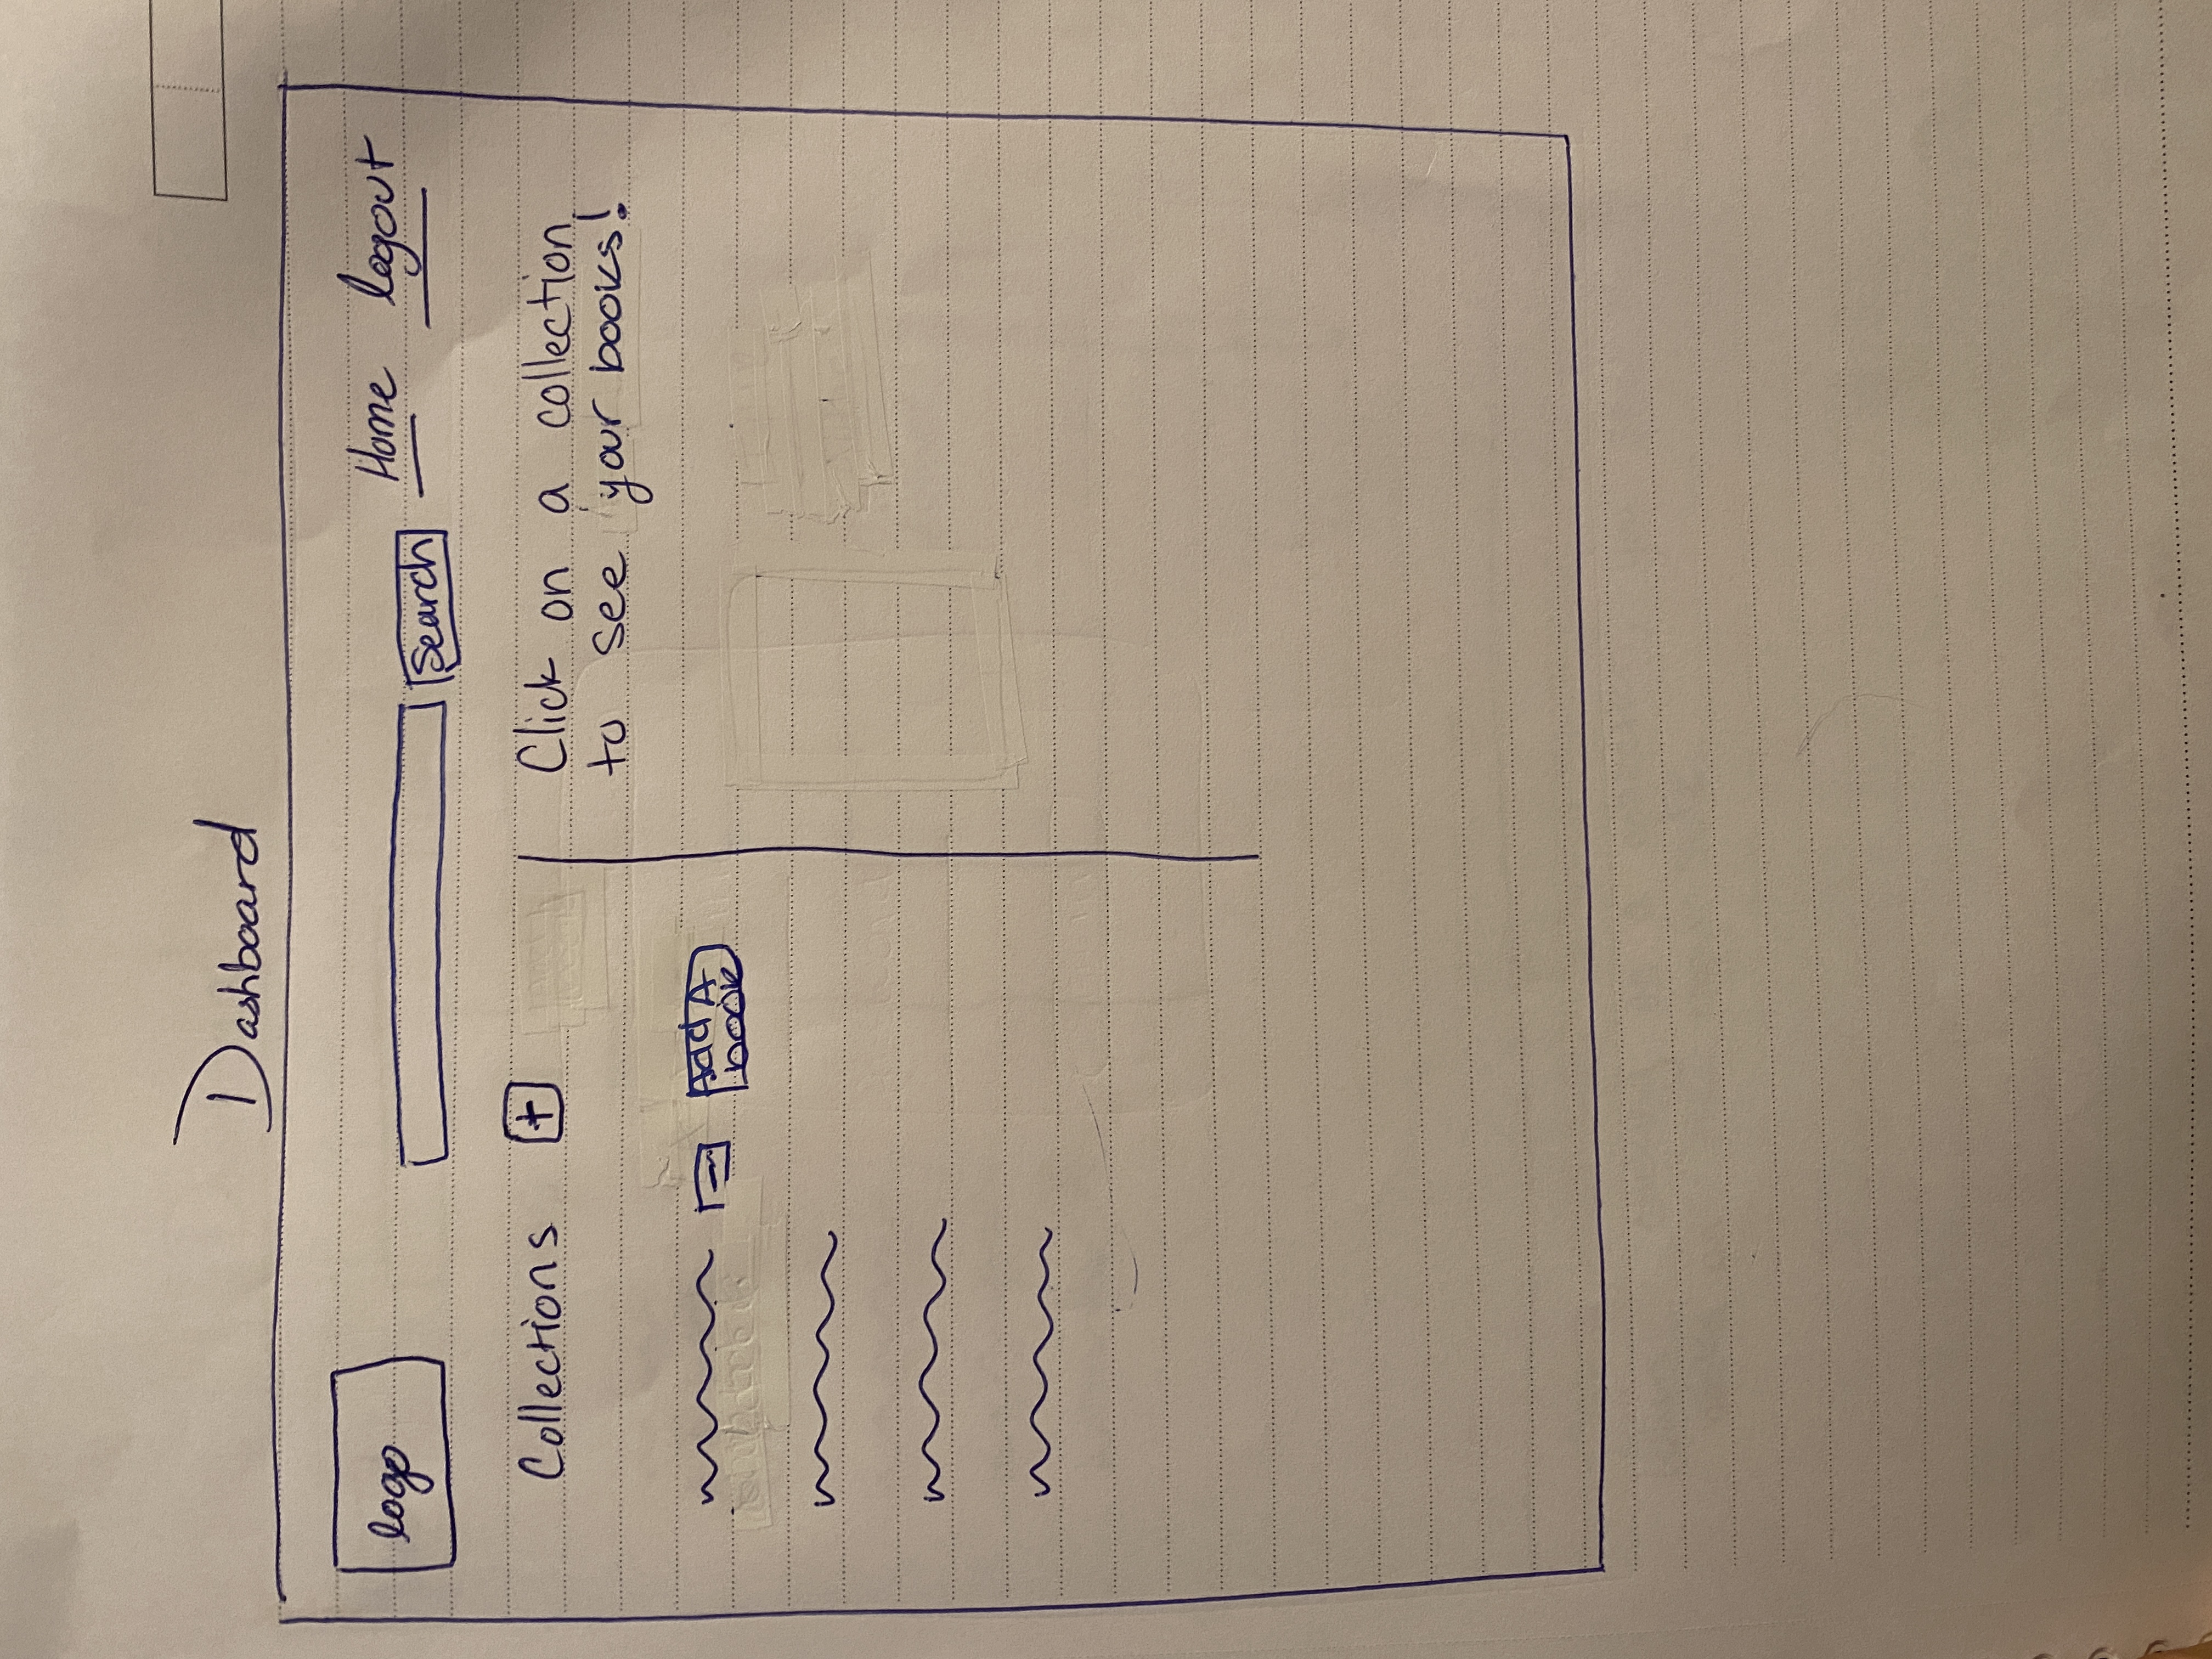 Dashboard
logo
Search
Home
logout
Collections +
Click on a collection
to see your books!
- Add A
book